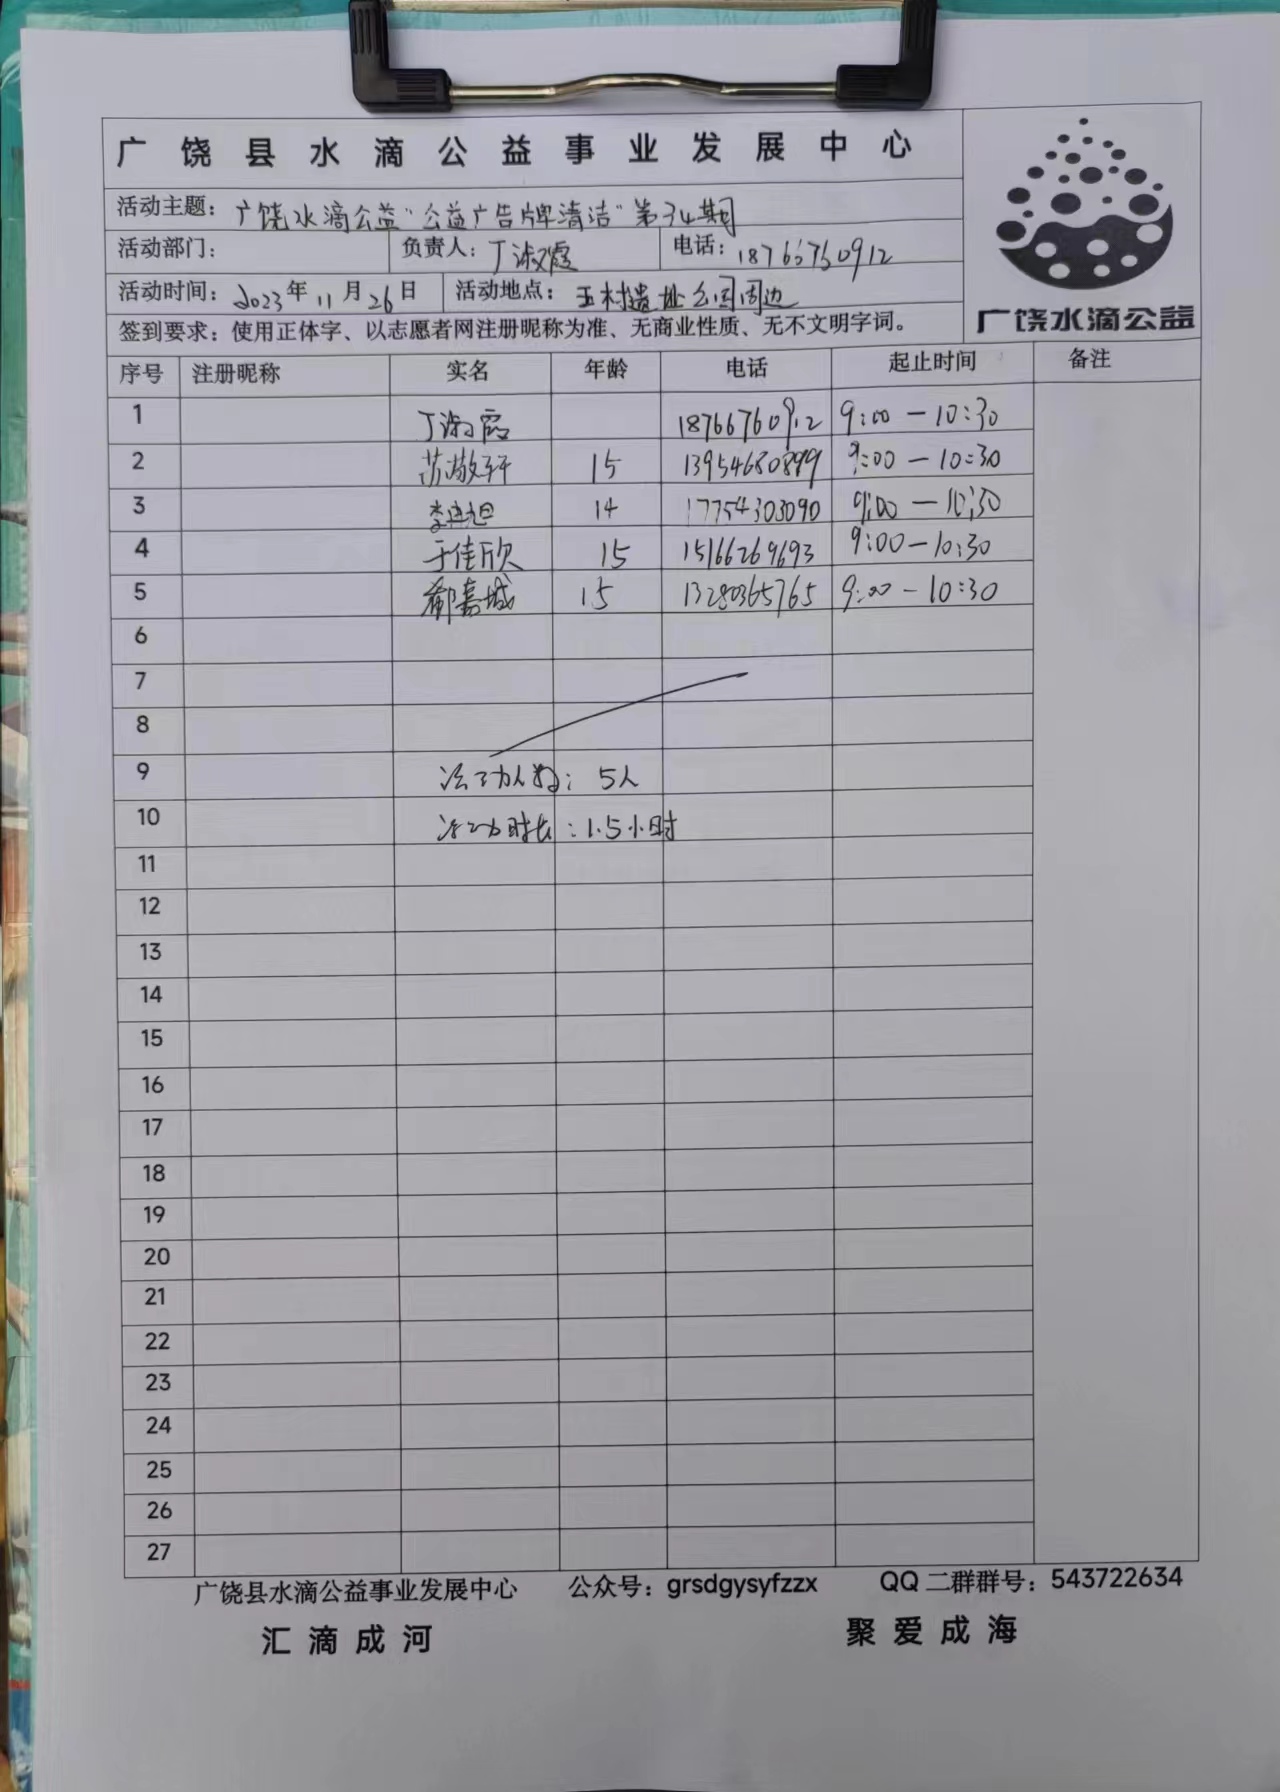 广饶县水滴公益事业发展中心
活动主题：广饶水滴公益“公益广告牌清洁”第34期
活动部门： 负责人：丁淑霞 电话：18766760912
活动时间：2023年11月26日 活动地点：五村遗址公园周边
签到要求：使用正体字、以志愿者网注册昵称为准、无商业性质、无不文明字词。
广饶水滴公益
序号 注册昵称 实名 年龄 电话 起止时间 备注
1 丁淑霞 18766760912 9:00—10:30
2 苏敬轩 15 13954680899 9:00—10:30
3 14 17754303090 9:00—10:30
4 于佳欣 15 15166269693 9:00—10:30
5 郗嘉城 15 13280365765 9:00—10:30
6
7
8
9 活动人数：5人
10 活动时长：1.5小时
11
12
13
14
15
16
17
18
19
20
21
22
23
24
25
26
27
广饶县水滴公益事业发展中心 公众号：grsdgysyfzzx QQ二群群号：543722634
汇滴成河 聚爱成海